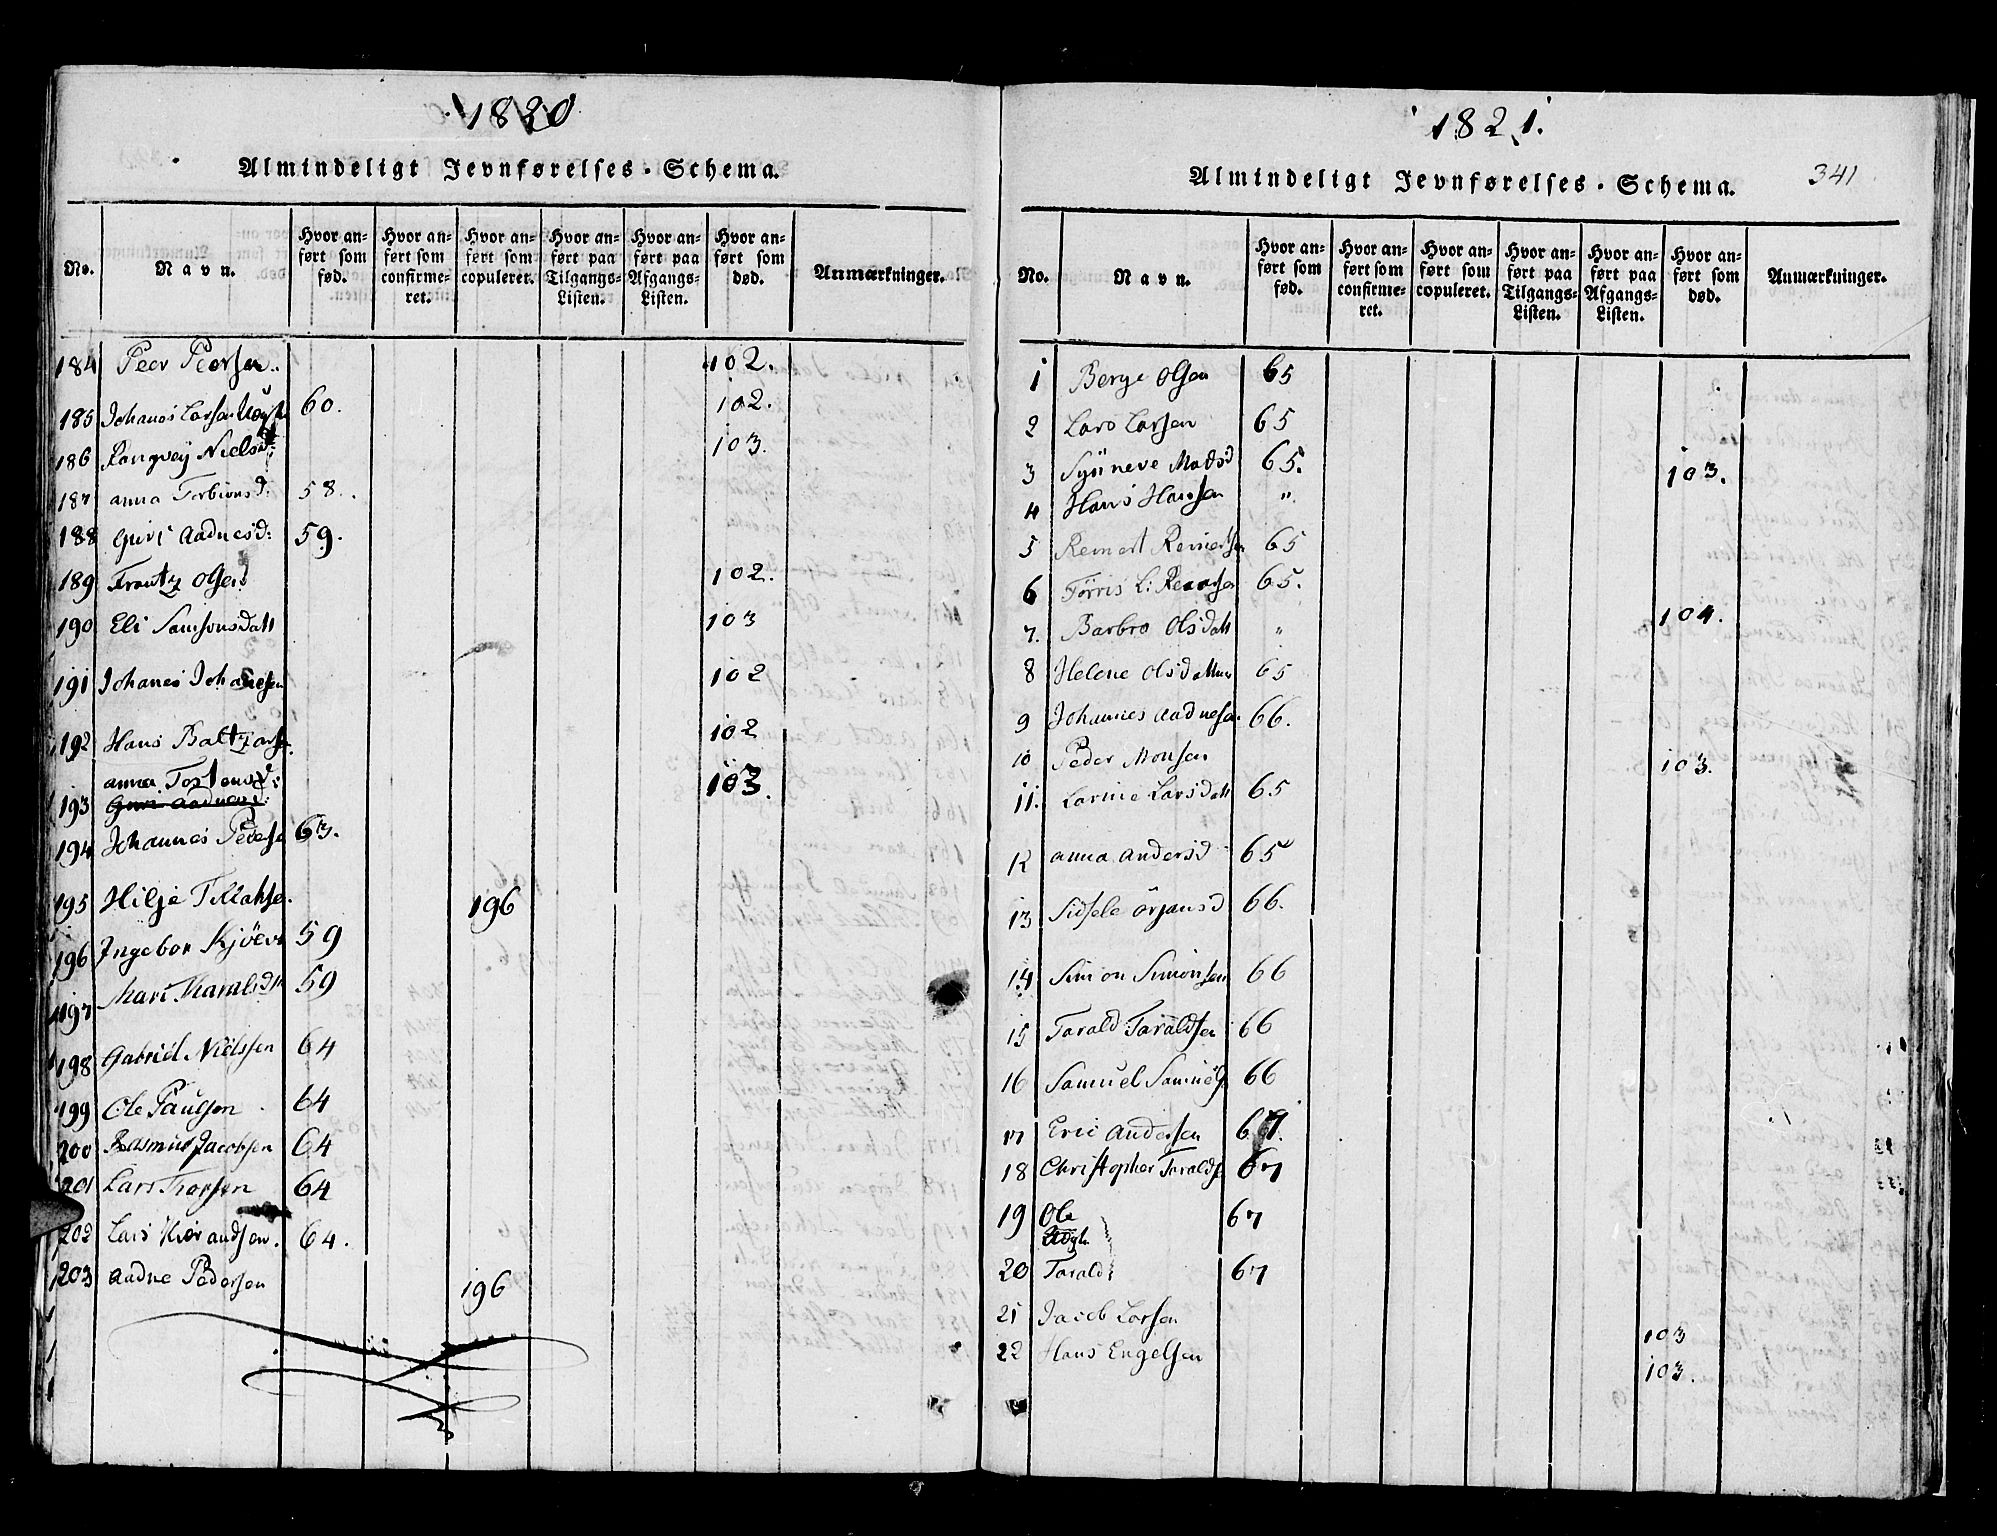 1820
Almindeligt Jevnførelses-Schema.
No. Navn. Hvor anført som fød. Hvor anført som confirmeret. Hvor anført som copuleret. Hvor anført paa Tilgangs-Listen. Hvor anført paa Afgangs-Listen. Hvor anført som død. Anmærkninger.
184 Peer Peersen. 102.
185 Johanes Larsen 60. 102.
186 Rangvej Nielsd: 103.
187 anna Torbiønsd: 58.
188 Guri Aadnesd: 59.
189 Frantz Olsen 102.
190 Eli Samsonsdatt 103
191 Johanes Johanesen 102
192 Hans Baltzars. 102
anna Tostensd:
193 Guri Aadnesd: 103.
194 Johannes Pedese 63.
195 Hilje Tollakse. 196
196 Ingebor 59
197 Mari 59
198 Gabriel Nielssen 64
199 Ole Paulsen 64
200 Rasmus Jacobsen 64
201 Lars Thorsen 64
202 Lars 64.
203 Aadne Pedersen 196
1821.
Almindeligt Jevnførelses-Schema. 341
No. Navn. Hvor anført som fød. Hvor anført som confirmeret. Hvor anført som copuleret. Hvor anført paa Tilgangs-Listen. Hvor anført paa Afgangs-Listen. Hvor anført som død. Anmærkninger.
1 Berge Olsen 65
2 Lars Larsen 65
3 Synneve Madsd 65. 103.
4 Hans Hansen "
5 Reinert Reinertsen 65
6 Tørris L: 65.
7. Barbro Olsdatt " 104.
8 Helene Olsdatter 65
9 Johannes Aadnesen. 66.
10 Peder Monsen 103.
11. Larine Larsdatt 65
12 anna Andersd 65
13 Sidsele Örjansd 66.
14 Simon Simonsen 66
15 Tarald Taraldsen 66
16 Samuel Samuels 66
17 Eric Andersen 67.
18 Christopher Taralds 67
19 Ole 67
20 Tarald 67
21 Jacob Larsen 103
22 Hans Engelsen 103.